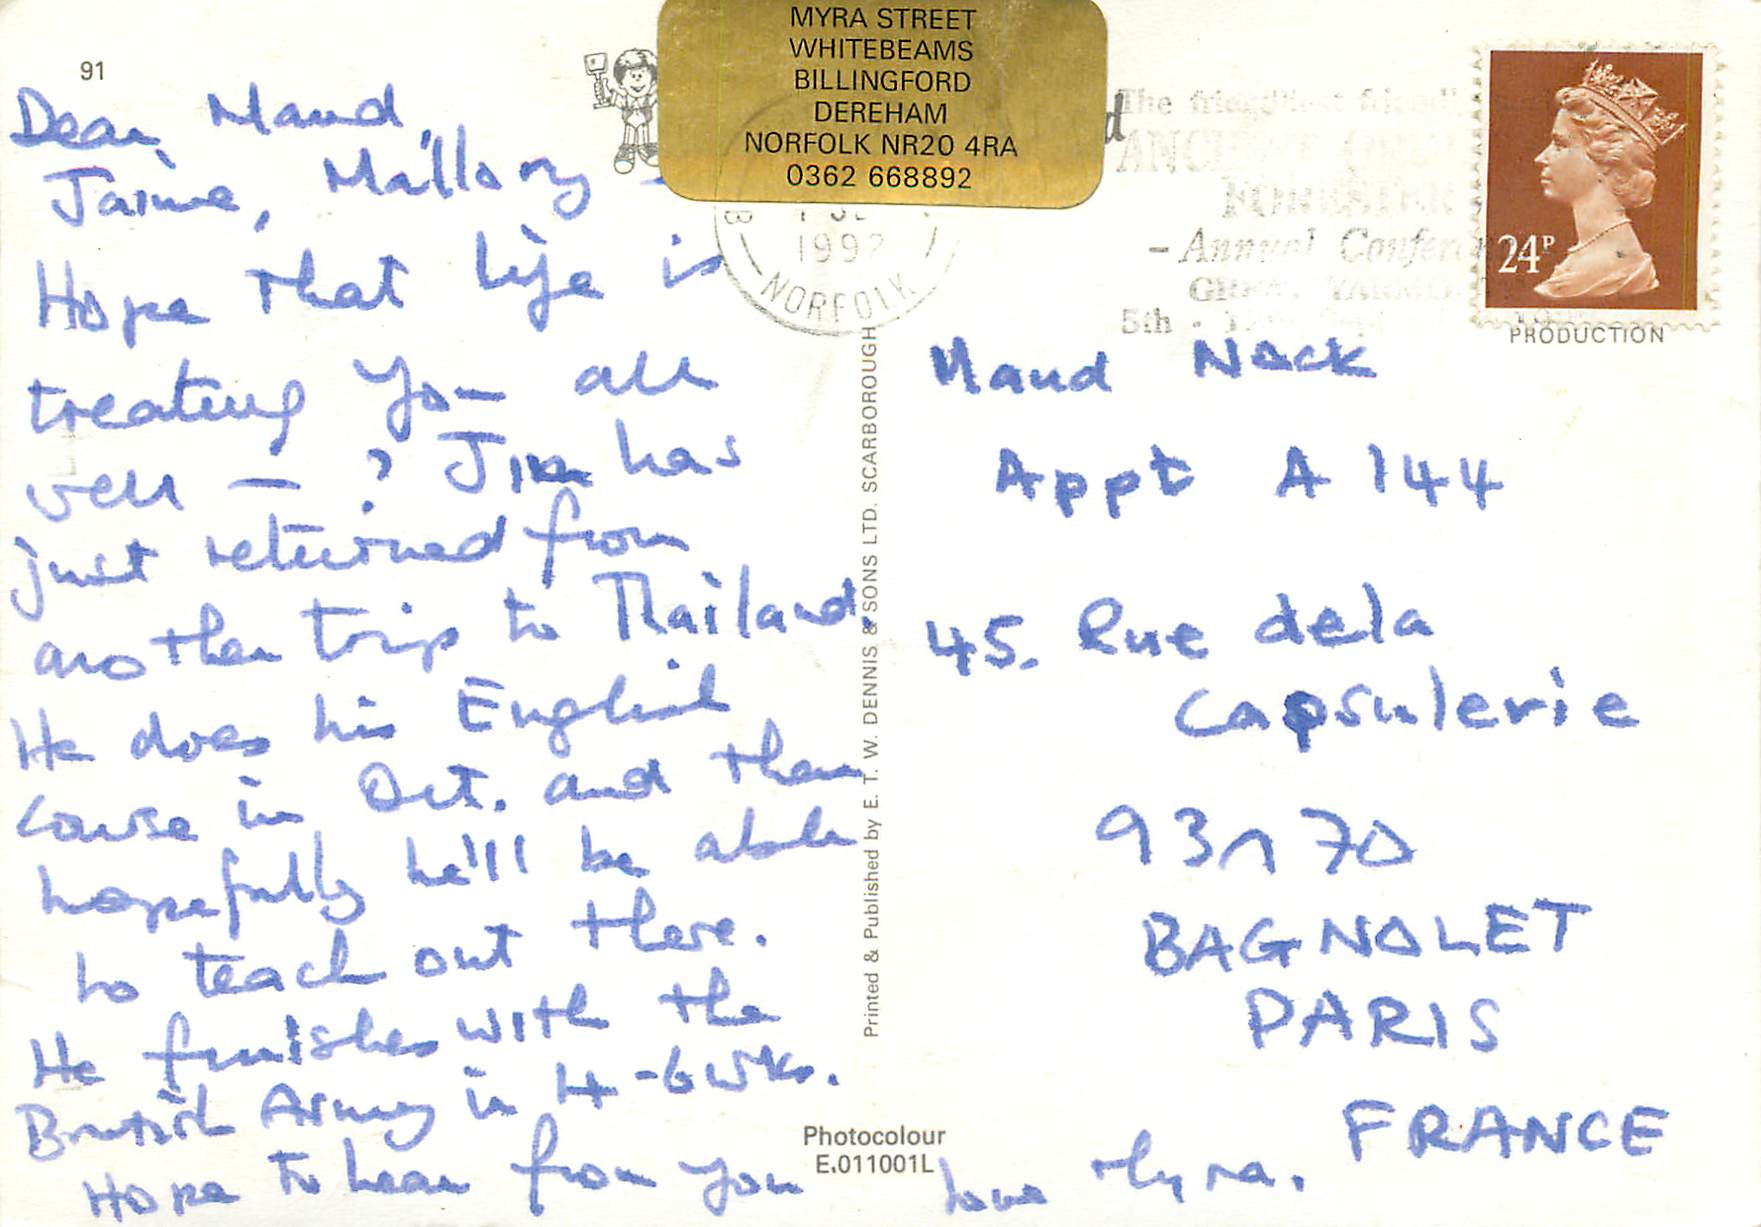 91
MYRA STREET
WHITEBEAMS
BILLINGFORD
DEREHAM
NORFOLK NR20 4RA
0362 668892
Dear Maud,
Jaime, Mallory -
Hope that life is
treating you all
well - ? Jim has
just returned from
another trip to Thailand.
He does his English
course in Oct. and then
hopefully he'll be able
to teach out there.
He finishes with the
British Army in 4-6 wks.
Hope to hear from you
love Myra.
1992
NORFOLK
The friendliest
ANCIENT ORDER
FORESTER
- Annual Conferen
GREAT YARMO
5th -
24P
PRODUCTION
Printed & Published by E. T. W. DENNIS & SONS LTD. SCARBOROUGH
Photocolour
E.011001L
Maud Nack
Appt A 144
45. Rue dela
Capsulerie
93170
BAGNOLET
PARIS
FRANCE